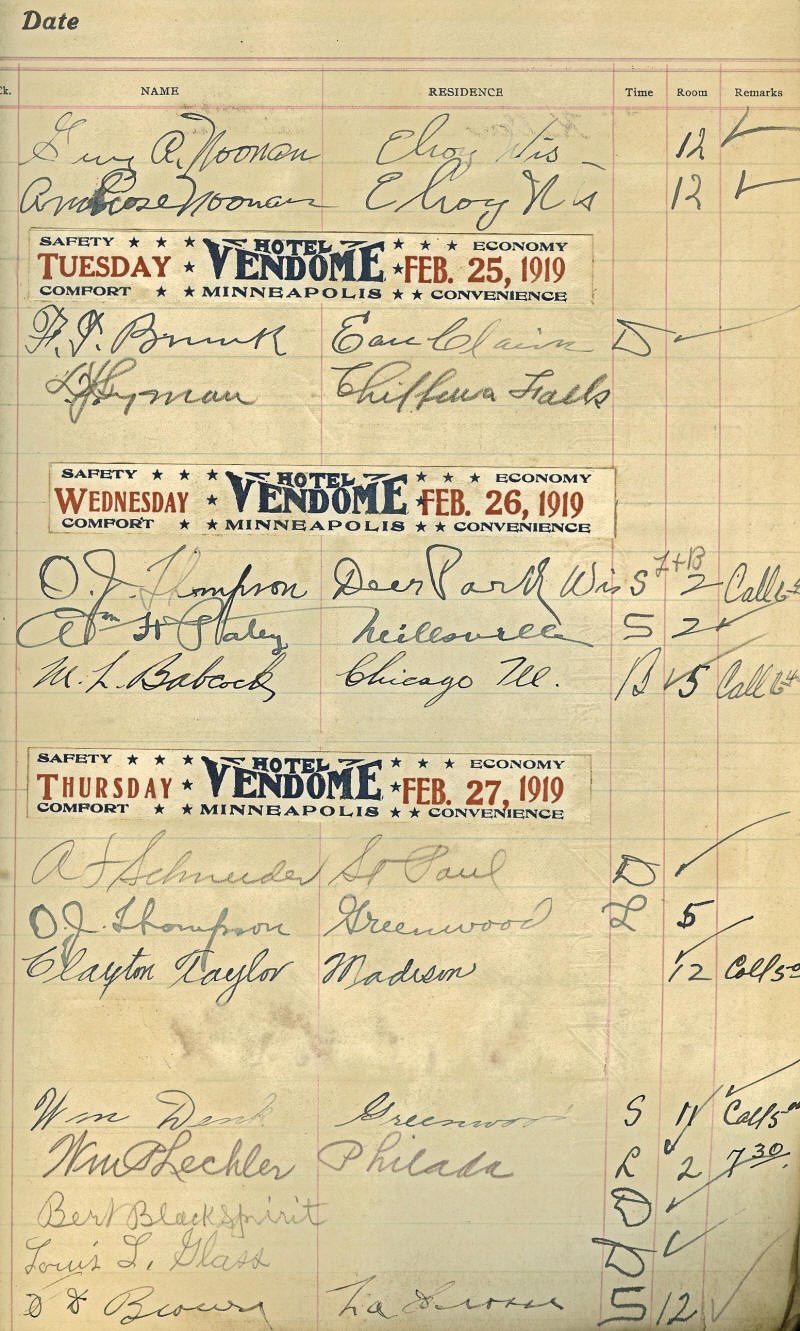 Date
Ck. NAME RESIDENCE Time Room Remarks
R. Noonan Elroy Wis 12 ✓
Ambrose Noonan Elroy Wis 12 ✓
SAFETY ★ ★ ★ HOTEL ★ ★ ★ ECONOMY
TUESDAY ★ VENDOME ★ FEB. 25, 1919
COMFORT ★ ★ MINNEAPOLIS ★ ★ CONVENIENCE
F. J. Brunk Eau Claire D ✓
Lyman Chippewa Falls
SAFETY ★ ★ ★ HOTEL ★ ★ ★ ECONOMY
WEDNESDAY ★ VENDOME ★ FEB. 26, 1919
COMFORT ★ ★ MINNEAPOLIS ★ ★ CONVENIENCE
L+B
O. J. Thompson Deer Park Wis S 2 Call
Wm H Staley Neillsville S 2 ✓
M. L. Babcock Chicago Ill. B ✓ 5 Call
SAFETY ★ ★ ★ HOTEL ★ ★ ★ ECONOMY
THURSDAY ★ VENDOME ★ FEB. 27, 1919
COMFORT ★ ★ MINNEAPOLIS ★ ★ CONVENIENCE
A F Schneider St Paul D ✓
O. J. Thompson Greenwood L 5
Clayton Taylor Madison 12 Call
Wm Denk Greenwood S 11 Call
Wm P Lechler Philada L 2 7 30
Bert Blackspirit D ✓
Louis L. Glass D ✓
D D Brown La Crosse S 12 ✓